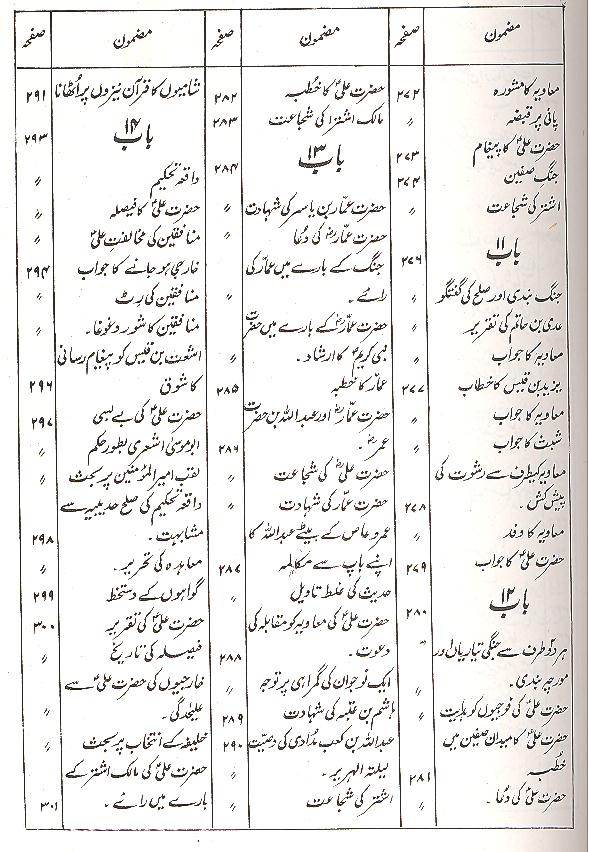 مضمون صفحہ
معاویہ کا مشورہ ۲۷۲
پانی پر قبضہ 〃
حضرت علیؑ کا پیغام ۲۷۳
جنگ صفین ۲۷۴
اشتر کی شجاعت 〃
باب ۱۱ ۲۷۶
جنگ بندی اور صلح کی گفتگو 〃
عدی بن حاتم کی تقریر 〃
معاویہ کا جواب 〃
یزید بن قیس کا خطاب ۲۷۷
معاویہ کا جواب 〃
شبث کا جواب 〃
معاویہ کیطرف سے رشوت کی
پیش کش ۔ ۲۷۸
معاویہ کا وفد 〃
حضرت علیؑ کا جواب ۲۷۹
باب ۱۲ ۲۸۰
ہر دو طرف سے جنگی تیاریاں اور 〃
مورچہ بندی ۔ 〃
حضرت علیؑ کی فوجیوں کو ہدایت 〃
حضرت علیؑ کا میدان صفین میں
خطبہ ۲۸۱
حضرت علیؑ کی دعا ۔ 〃
مضمون صفحہ
حضرت علیؑ کا خطبہ ۲۸۲
مالک اشتر کی شجاعت ۲۸۳
باب ۱۳ ۲۸۴
حضرت عمار بن یاسر کی شہادت 〃
حضرت عمارؓ کی دُعا 〃
جنگ کے بارے میں عمار کی
رائے ۔ 〃
حضرت عمارؓ کے بارے میں حضرت
نبی کریمؐ کا ارشاد ۔ 〃
عمار کا خطبہ ۲۸۵
حضرت عمارؓ اور عبد اللہ بن حضرت
عمرؓ ۔ ۲۸۶
حضرت علیؓ کی شجاعت 〃
حضرت عمار کی شہادت 〃
عمرو عاص کے بیٹے عبد اللہ کا
اپنے باپ سے مکالمہ ۲۸۷
حدیث کی غلط تاویل 〃
حضرت علیؑ کی معاویہ کو مقابلہ کی
دعوت ۔ ۲۸۸
ایک نوجوان کی گمراہی پر توجہ 〃
ہاشم بن عتبہ کی شہادت ۲۸۹
عبد اللہ بن کعب مُرادی کی وصیّت ۲۹۰
لیلتہ الہریر ۔ 〃
اشتر کی شجاعت 〃
مضمون صفحہ
شامیوں کا قرآن نیزوں پر اُٹھانا ۲۹۱
باب ۱۴ ۲۹۳
واقعہ تحکیم 〃
حضرت علیؑ کا فیصلہ 〃
منافقین کی مخالفت علیؑ 〃
خارجی ہو جانے کا جواب ۲۹۴
منافقین کی رٹ 〃
منافقین کا شور و غوغا ۔ 〃
اشعث بن قیس کو پیغام رسانی
کا شوق ۲۹۶
حضرت علیؑ کی بے بسی ۲۹۷
ابوموسیٰ اشعری بطور حکم 〃
لقب امیر المؤمنین پر بحث 〃
واقعہ تحکیم کی صلح حدیبیہ سے
مشابہت ۔ ۲۹۸
معاہدہ کی تحریر ۔ 〃
گواہوں کے دستخط ۲۹۹
حضرت علیؑ کی تقریر ۳۰۰
فیصلہ کی تاریخ 〃
خارجیوں کی حضرت علیؑ سے
علیحدگی ۔ 〃
خلیفہ کے انتخاب پر بحث 〃
حضرت علیؑ کی مالک اشتر کے
بارے میں رائے ۔ ۳۰۱